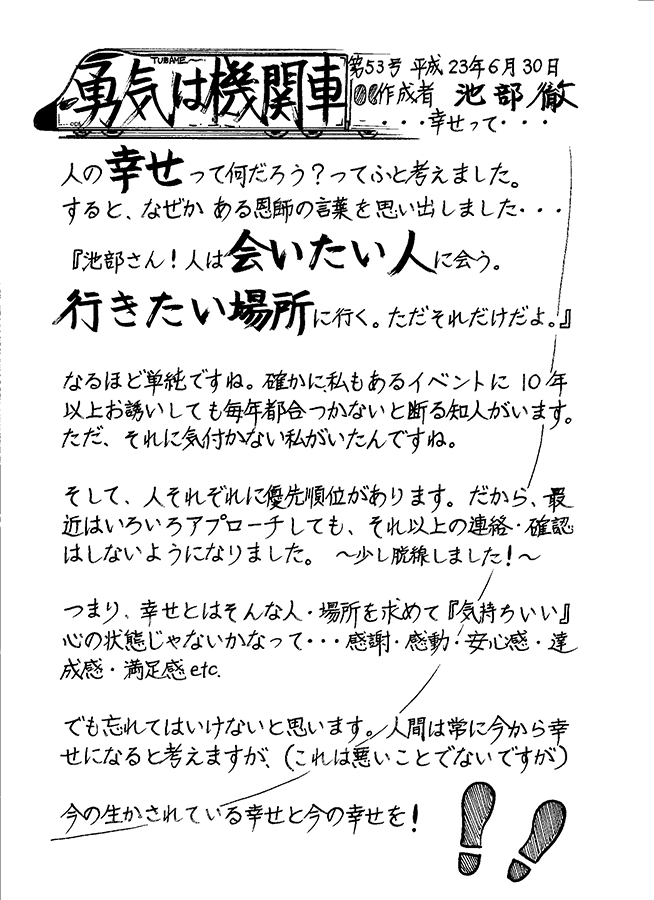 TUBAME
勇気は機関車
第53号 平成23年6月30日
作成者 池部徹
・・・幸せって・・・
人の幸せって何だろう？ってふと考えました。
すると、なぜか ある恩師の言葉を思い出しました・・・
『池部さん！人は会いたい人に会う。
行きたい場所に行く。ただそれだけだよ。』
なるほど単純ですね。確かに私もあるイベントに 10年
以上お誘いしても毎年都合つかないと断る知人がいます。
ただ、それに気付かない私がいたんですね。
そして、人それぞれに優先順位があります。だから、最
近はいろいろアプローチしても、それ以上の連絡・確認
はしないようになりました。 〜少し脱線しました！〜
つまり、幸せとはそんな人・場所を求めて『気持ちいい』
心の状態じゃないかなって・・・感謝・感動・安心感・達
成感・満足感etc.
でも忘れてはいけないと思います。人間は常に今から幸
せになると考えますが、（これは悪いことでないですが）
今の生かされている幸せと今の幸せを！